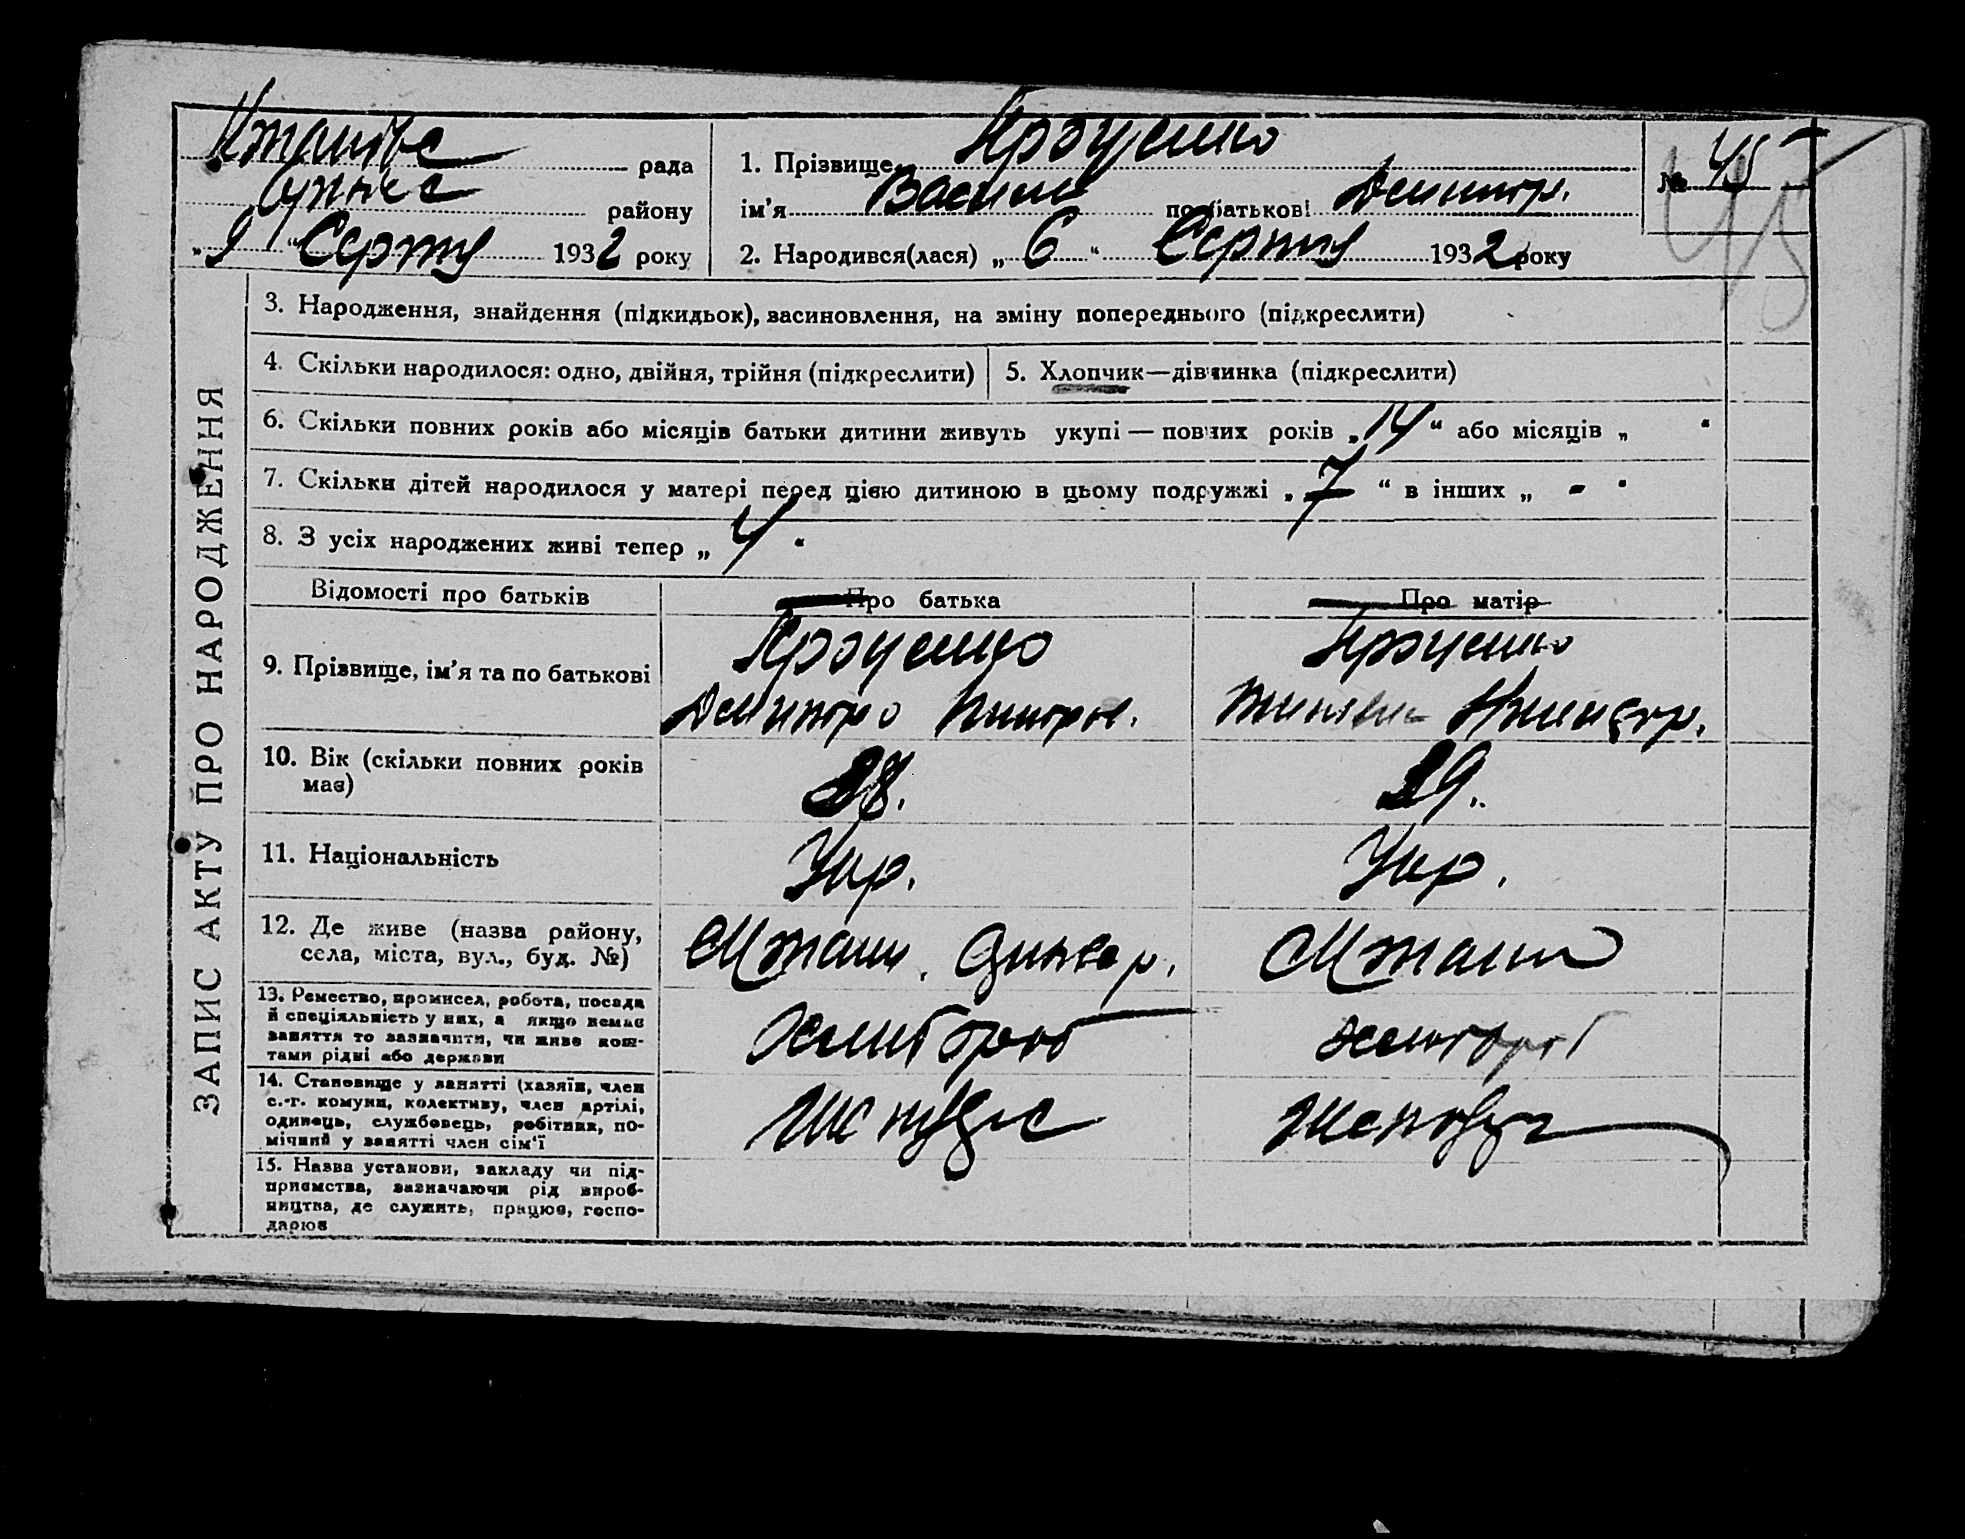 рада
району
„ 9 “ Серпня 1932 року
1. Прізвище
ім’я Василь по батькові Дмитр.
2. Народився(лася) „ 6 “ Серпня 1932 року
№ 45
45
ЗАПИС АКТУ ПРО НАРОДЖЕННЯ
3. Народження, знайдення (підкидьок), васиновлення, на зміну попереднього (підкреслити)
4. Скільки народилося: одно, двійня, трійня (підкреслити)
5. Хлопчик—дівчинка (підкреслити)
6. Скільки повних років або місяців батьки дитини живуть укупі — повних років „ 14 “ або місяців „ “
7. Скільки дітей народилося у матері перед цією дитиною в цьому подружжі „ 7 “ в інших „ - “
8. З усіх народжених живі тепер „ 4 “
Відомості про батьків
Про батька
Про матір
9. Прізвище, ім’я та по батькові
Дмитро
10. Вік (скільки повних років
має)
29.
11. Національність
Укр.
Укр.
12. Де живе (назва району,
села, міста, вул., буд. №)
13. Ремество, промисел, робота, посада
й спеціяльність у них, а якщо немає
заняття то зазначити, чи живе кош-
тами рідні або держави
Хлибороб
хлибороб
14. Становище у занятті (хазяїн, член
с.-г. комуни, колективу, член артілі,
одинець, службовець, робітник, по-
мічний у занятті член сім’ї
15. Назва установи, закладу чи під-
приємства, зазначаючи рід вироб-
ництва, де служить, працює, госпо-
дарює